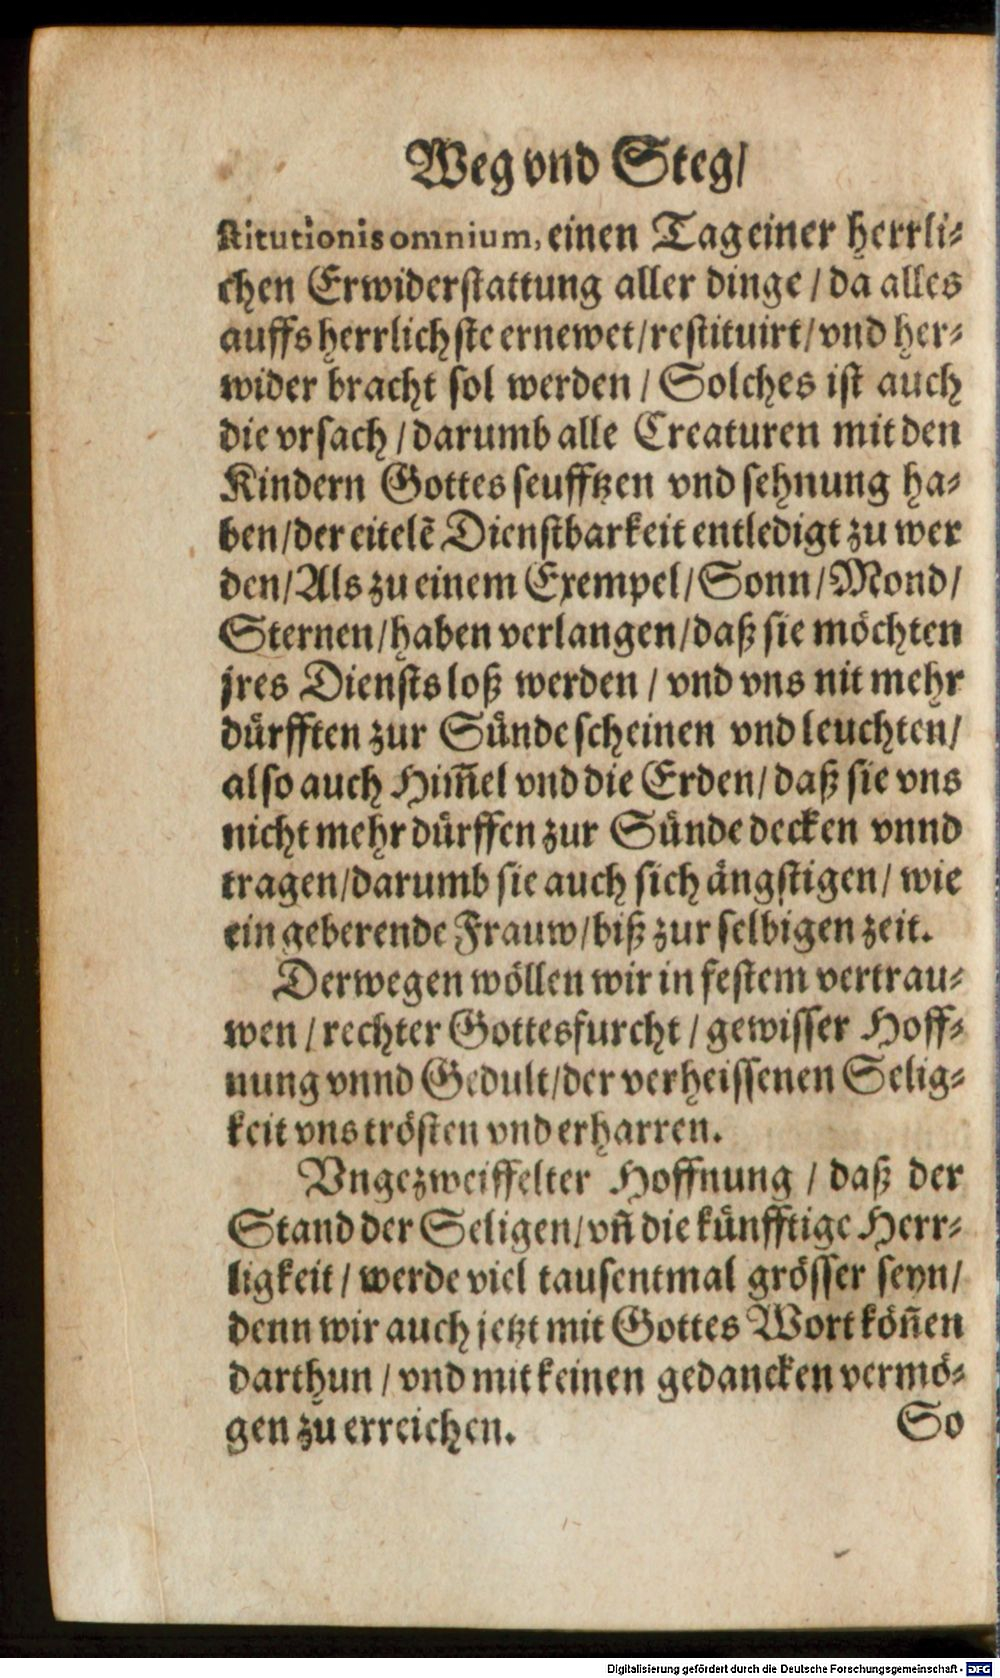 Weg vnd Steg/
stitutionis omnium, einen Tag einer herrli-
chen Erwiderstattung aller dinge / da alles
auffs herrlichste ernewet/restituirt/vnd her-
wider bracht sol werden / Solches ist auch
die vrsach / darumb alle Creaturen mit den
Kindern Gottes seufftzen vnd sehnung ha-
ben/der eitelẽ Dienstbarkeit entledigt zu wer
den/Als zu einem Exempel/Sonn/Mond/
Sternen/haben verlangen/daß sie möchten
jres Diensts loß werden / vnd vns nit mehr
dürfften zur Sünde scheinen vnd leuchten/
also auch Him̃el vnd die Erden/daß sie vns
nicht mehr dürffen zur Sünde decken vnnd
tragen/darumb sie auch sich ängstigen/ wie
ein geberende Frauw/biß zur selbigen zeit.
Derwegen wöllen wir in festem vertrau-
wen / rechter Gottesfurcht / gewisser Hoff-
nung vnnd Gedult/der verheissenen Selig-
keit vns trösten vnd erharren.
Vngezweiffelter Hoffnung / daß der
Stand der Seligen/vñ die künfftige Herr-
ligkeit / werde viel tausentmal grösser seyn/
denn wir auch jetzt mit Gottes Wort köñen
darthun / vnd mit keinen gedancken vermö-
gen zu erreichen. So
Digitalisierung gefördert durch die Deutsche Forschungsgemeinschaft - DFG